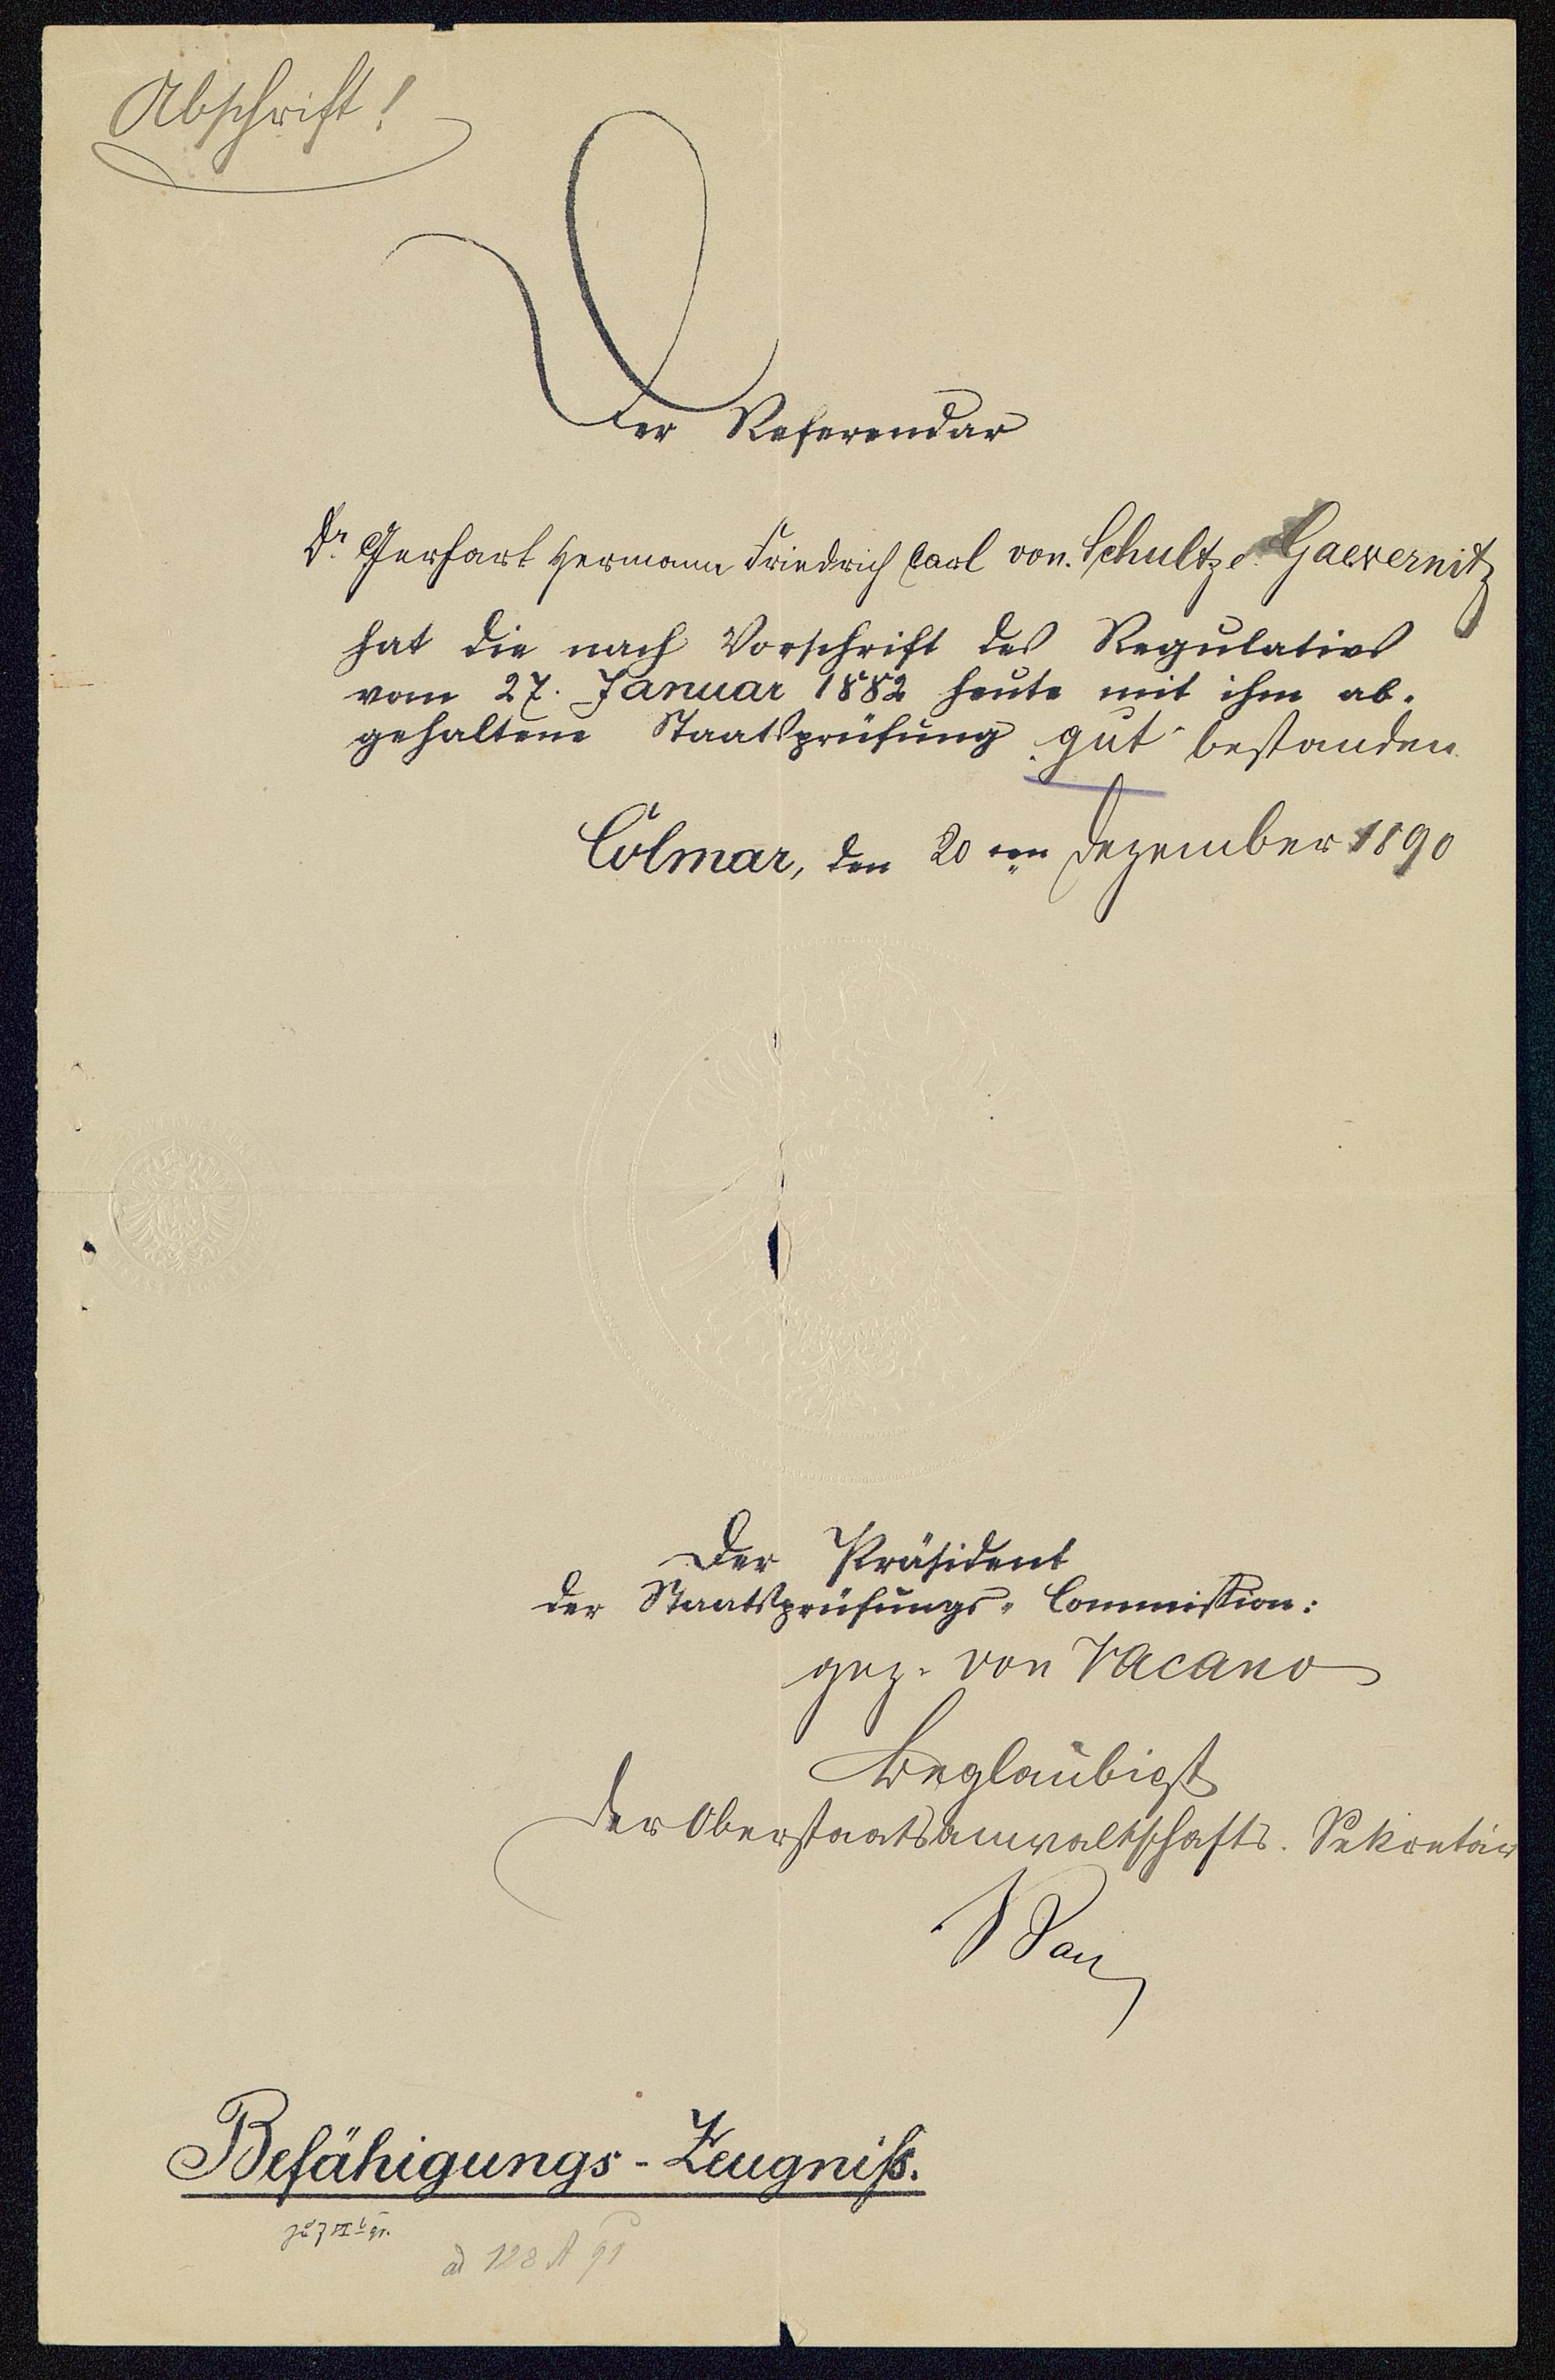 Abschrift!
Der Referendar
Dr. Gerhart Hermann Friedrich Carl von Schultze Gaevernitz
hat die nach Vorschrift des Regulativs
vom 27. Januar 1882 heute mit ihm ab-
gehaltene Staatsprüfung „gut“ bestanden.
Colmar, den 20ten Dezember 1890
Der Präsident
der Staatsprüfungs-Commission:
gez. von Vacano
Beglaubigt
Der Oberstaatsanwaltschafts-Sekretär
Befähigungs-Zeugniß.
ad 128 A 91